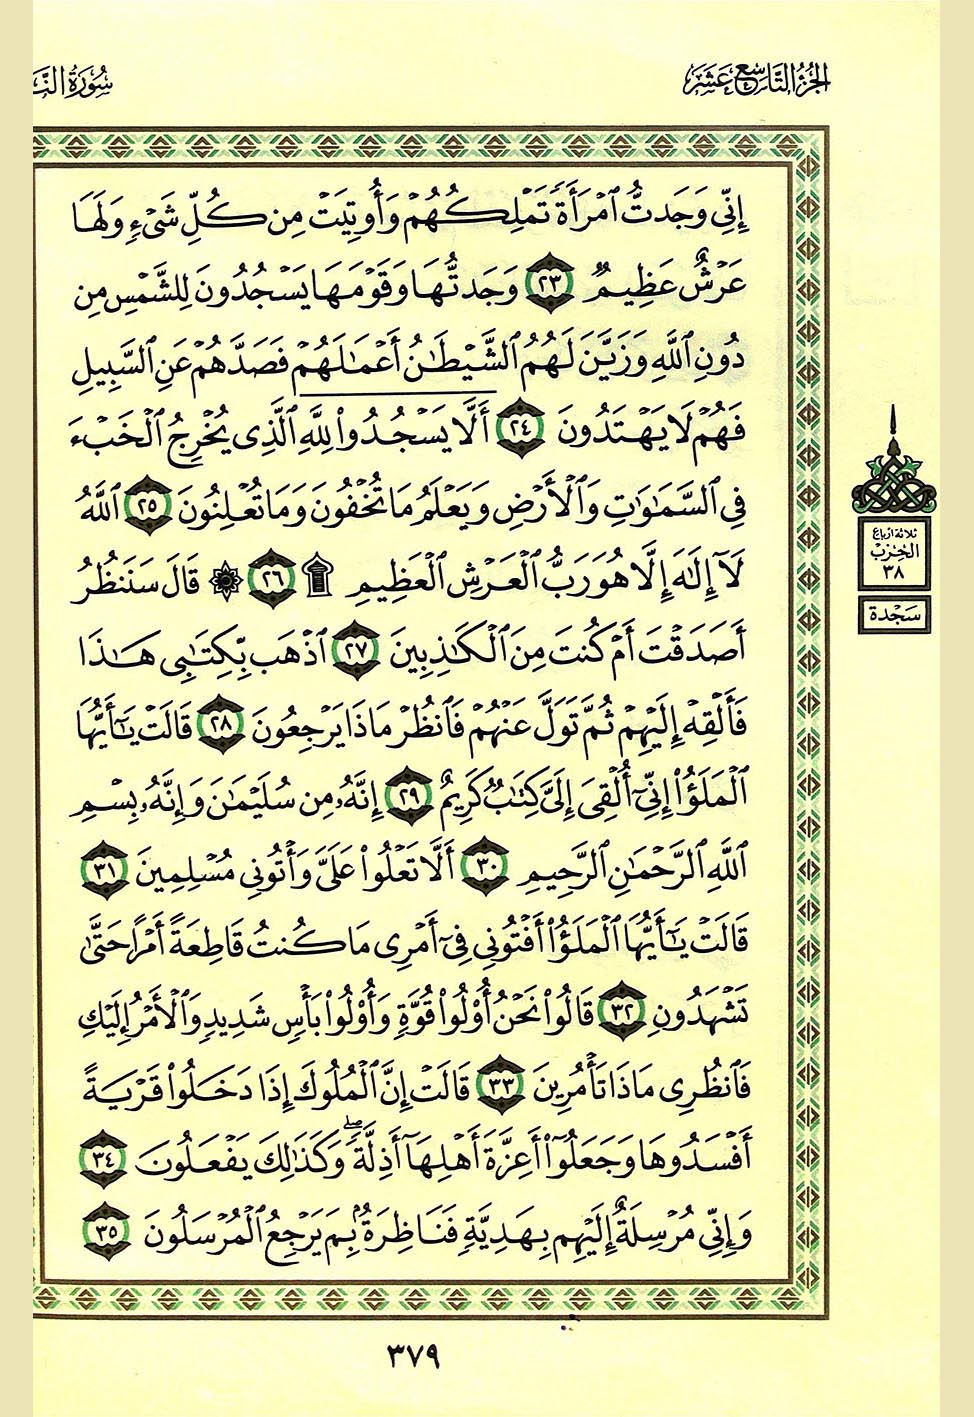 الجزء التاسع عشر
سورة
إِنِّي وَجَدتُّ ٱمْرَأَةً تَمْلِكُهُمْ وَأُوتِيَتْ مِن كُلِّ شَىْءٍ وَلَهَا
عَرْشٌ عَظِيمٌ ٢٣ وَجَدتُّهَا وَقَوْمَهَا يَسْجُدُونَ لِلشَّمْسِ مِن
دُونِ ٱللَّهِ وَزَيَّنَ لَهُمُ ٱلشَّيْطَٰنُ أَعْمَٰلَهُمْ فَصَدَّهُمْ عَنِ ٱلسَّبِيلِ
فَهُمْ لَا يَهْتَدُونَ ٢٤ أَلَّا يَسْجُدُوا۟ لِلَّهِ ٱلَّذِى يُخْرِجُ ٱلْخَبْءَ
فِى ٱلسَّمَٰوَٰتِ وَٱلْأَرْضِ وَيَعْلَمُ مَا تُخْفُونَ وَمَا تُعْلِنُونَ ٢٥ ٱللَّهُ
لَآ إِلَٰهَ إِلَّا هُوَ رَبُّ ٱلْعَرْشِ ٱلْعَظِيمِ ۩ ٢٦ ۞ قَالَ سَنَنظُرُ
أَصَدَقْتَ أَمْ كُنتَ مِنَ ٱلْكَٰذِبِينَ ٢٧ ٱذْهَب بِّكِتَٰبِى هَٰذَا
فَأَلْقِهْ إِلَيْهِمْ ثُمَّ تَوَلَّ عَنْهُمْ فَٱنظُرْ مَاذَا يَرْجِعُونَ ٢٨ قَالَتْ يَٰٓأَيُّهَا
ٱلْمَلَؤُا۟ إِنِّىٓ أُلْقِىَ إِلَىَّ كِتَٰبٌ كَرِيمٌ ٢٩ إِنَّهُۥ مِن سُلَيْمَٰنَ وَإِنَّهُۥ بِسْمِ
ٱللَّهِ ٱلرَّحْمَٰنِ ٱلرَّحِيمِ ٣٠ أَلَّا تَعْلُوا۟ عَلَىَّ وَأْتُونِى مُسْلِمِينَ ٣١
قَالَتْ يَٰٓأَيُّهَا ٱلْمَلَؤُا۟ أَفْتُونِى فِىٓ أَمْرِى مَا كُنتُ قَاطِعَةً أَمْرًا حَتَّىٰ
تَشْهَدُونِ ٣٢ قَالُوا۟ نَحْنُ أُو۟لُوا۟ قُوَّةٍ وَأُو۟لُوا۟ بَأْسٍ شَدِيدٍ وَٱلْأَمْرُ إِلَيْكِ
فَٱنظُرِى مَاذَا تَأْمُرِينَ ٣٣ قَالَتْ إِنَّ ٱلْمُلُوكَ إِذَا دَخَلُوا۟ قَرْيَةً
أَفْسَدُوهَا وَجَعَلُوٓا۟ أَعِزَّةَ أَهْلِهَآ أَذِلَّةً ۖ وَكَذَٰلِكَ يَفْعَلُونَ ٣٤
وَإِنِّى مُرْسِلَةٌ إِلَيْهِم بِهَدِيَّةٍ فَنَاظِرَةٌۢ بِمَ يَرْجِعُ ٱلْمُرْسَلُونَ ٣٥
ثلاثة أرباع
الحزب
٣٨
سجدة
٣٧٩